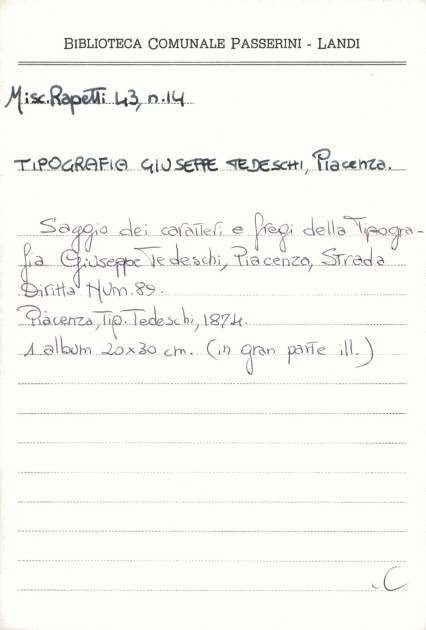 BIBLIOTECA COMUNALE PASSERINI - LANDI
Misc. Rapetti 43, n. 14
TIPOGRAFIA GIUSEPPE TEDESCHI, Piacenza.
Saggio dei caratteri e fregi della Tipogra-
fia Giuseppe Tedeschi, Piacenza, Strada
Diritta Num. 89.
Piacenza, Tip. Tedeschi, 1874.
1 album 20x30 cm. (in gran parte ill.)
C